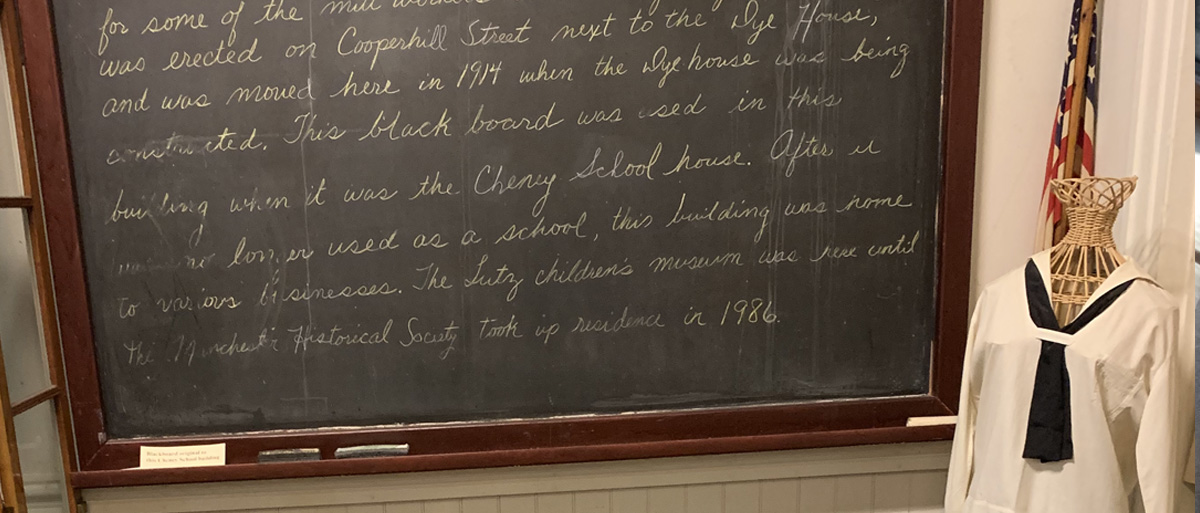 for some of the mill workers
was erected on Cooperhill Street next to the Dye House,
and was moved here in 1914 when the Dye house was being
constructed. This black board was used in this
building when it was the Cheney School house. After it
was no longer used as a school, this building was home
to various businesses. The Lutz children's museum was here until
the Manchester Historical Society took up residence in 1986.
Blackboard original to